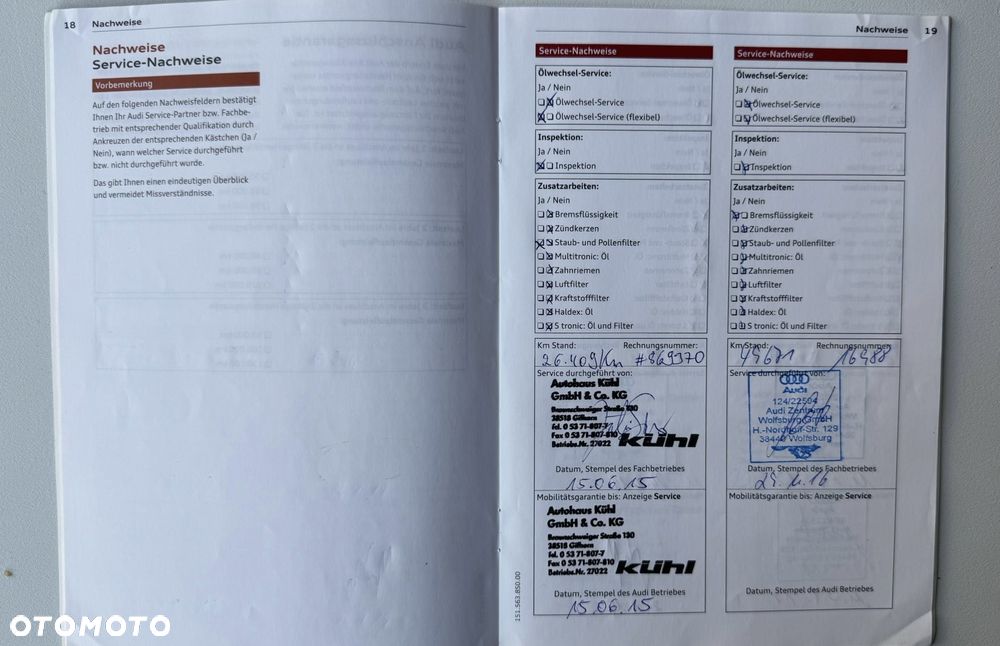 18 Nachweise
Nachweise
Service-Nachweise
Vorbemerkung
Auf den folgenden Nachweisfeldern bestätigt
Ihnen Ihr Audi Service-Partner bzw. Fachbe-
trieb mit entsprechender Qualifikation durch
Ankreuzen der entsprechenden Kästchen (Ja /
Nein), wann welcher Service durchgeführt
bzw. nicht durchgeführt wurde.
Das gibt Ihnen einen eindeutigen Überblick
und vermeidet Missverständnisse.
Nachweise 19
Service-Nachweise
Ölwechsel-Service:
Ja / Nein
Ölwechsel-Service
Ölwechsel-Service (flexibel)
Inspektion:
Ja / Nein
Inspektion
Zusatzarbeiten:
Ja / Nein
Bremsflüssigkeit
Zündkerzen
Staub- und Pollenfilter
Multitronic: Öl
Zahnriemen
Luftfilter
Kraftstofffilter
Haldex: Öl
S tronic: Öl und Filter
Km Stand: Rechnungsnummer:
26.409Km #869370
Service durchgeführt von:
Autohaus Kühl
GmbH & Co. KG
Braunschweiger Straße 130
38518 Gifhorn
Tel. 0 53 71-807-7
Fax 0 53 71-807-810
Betriebs.Nr. 27022
kühl
Datum, Stempel des Fachbetriebes
15.06.15
Mobilitätsgarantie bis: Anzeige Service
Autohaus Kühl
GmbH & Co. KG
Braunschweiger Straße 130
38518 Gifhorn
Tel. 0 53 71-807-7
Fax 0 53 71-807-810
Betriebs.Nr. 27022
kühl
Datum, Stempel des Audi Betriebes
15.06.15
151.563.850.00
Service-Nachweise
Ölwechsel-Service:
Ja / Nein
Ölwechsel-Service
Ölwechsel-Service (flexibel)
Inspektion:
Ja / Nein
Inspektion
Zusatzarbeiten:
Ja / Nein
Bremsflüssigkeit
Zündkerzen
Staub- und Pollenfilter
Multitronic: Öl
Zahnriemen
Luftfilter
Kraftstofffilter
Haldex: Öl
S tronic: Öl und Filter
Km Stand: Rechnungsnummer:
16488
Service durchgeführt von:
Audi
124/22504
Audi Zentrum
Wolfsburg GmbH
H.-Nordhoff-Str. 129
38440 Wolfsburg
Datum, Stempel des Fachbetriebes
Mobilitätsgarantie bis: Anzeige Service
Datum, Stempel des Audi Betriebes
OTOMOTO